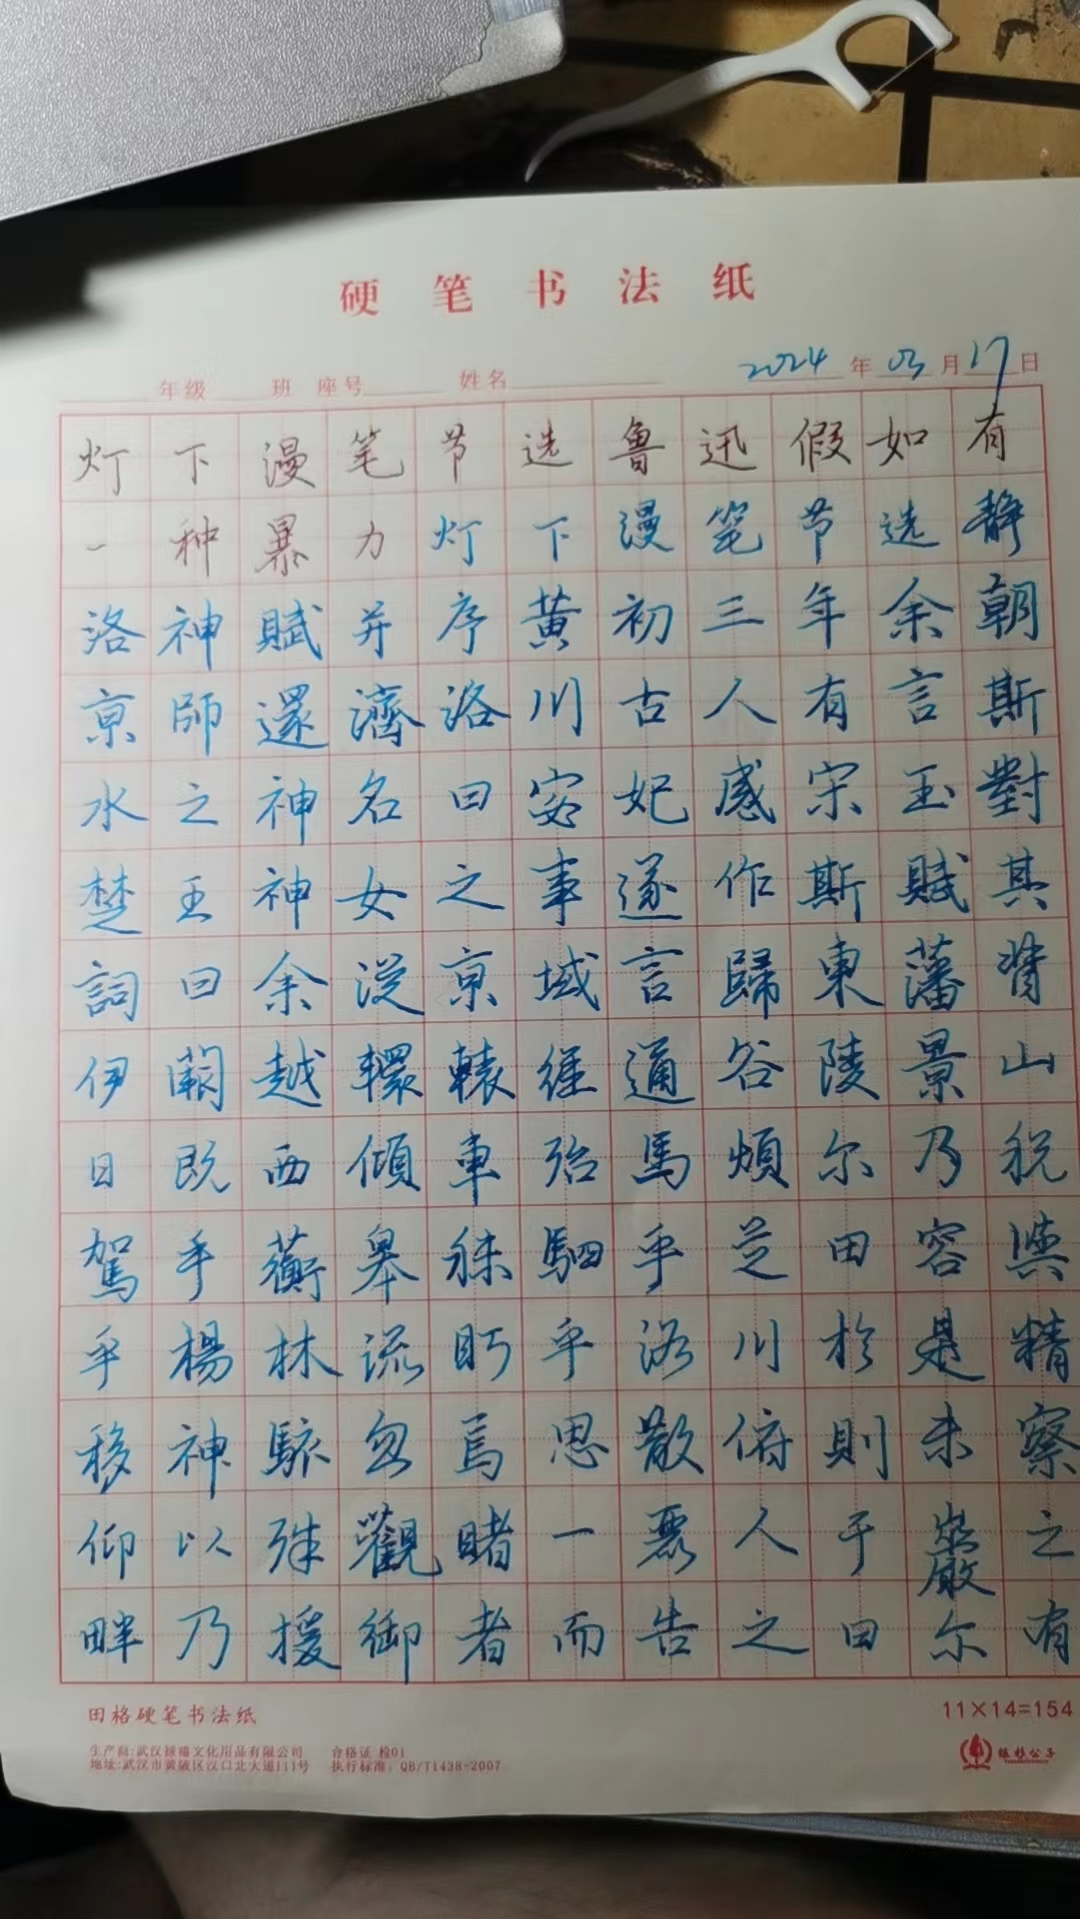 硬笔书法纸
年级 班 座号 姓名 2024年03月17日
灯下漫笔节选鲁迅假如有
一种暴力灯下漫笔节选静
洛神賦并序黄初三年余朝
京師還濟洛川古人有言斯
水之神名曰宓妃感宋玉對
楚王神女之事遂作斯賦其
詞曰余從京域言歸東藩背
伊闕越轘轅經通谷陵景山
日既西傾車殆馬煩尔乃税
駕乎蘅皋秣駟乎芝田容與
乎楊林流眄乎洛川於是精
移神駭忽焉思散俯則未察
仰以殊觀睹一麗人于巖之
畔乃援御者而告之曰尔有
田格硬笔书法纸 11×14=154
生产商:武汉 文化用品有限公司 合格证 检01
地址:武汉市黄陂区汉口北大道111号 执行标准: QB/T1438-2007
银杉公子